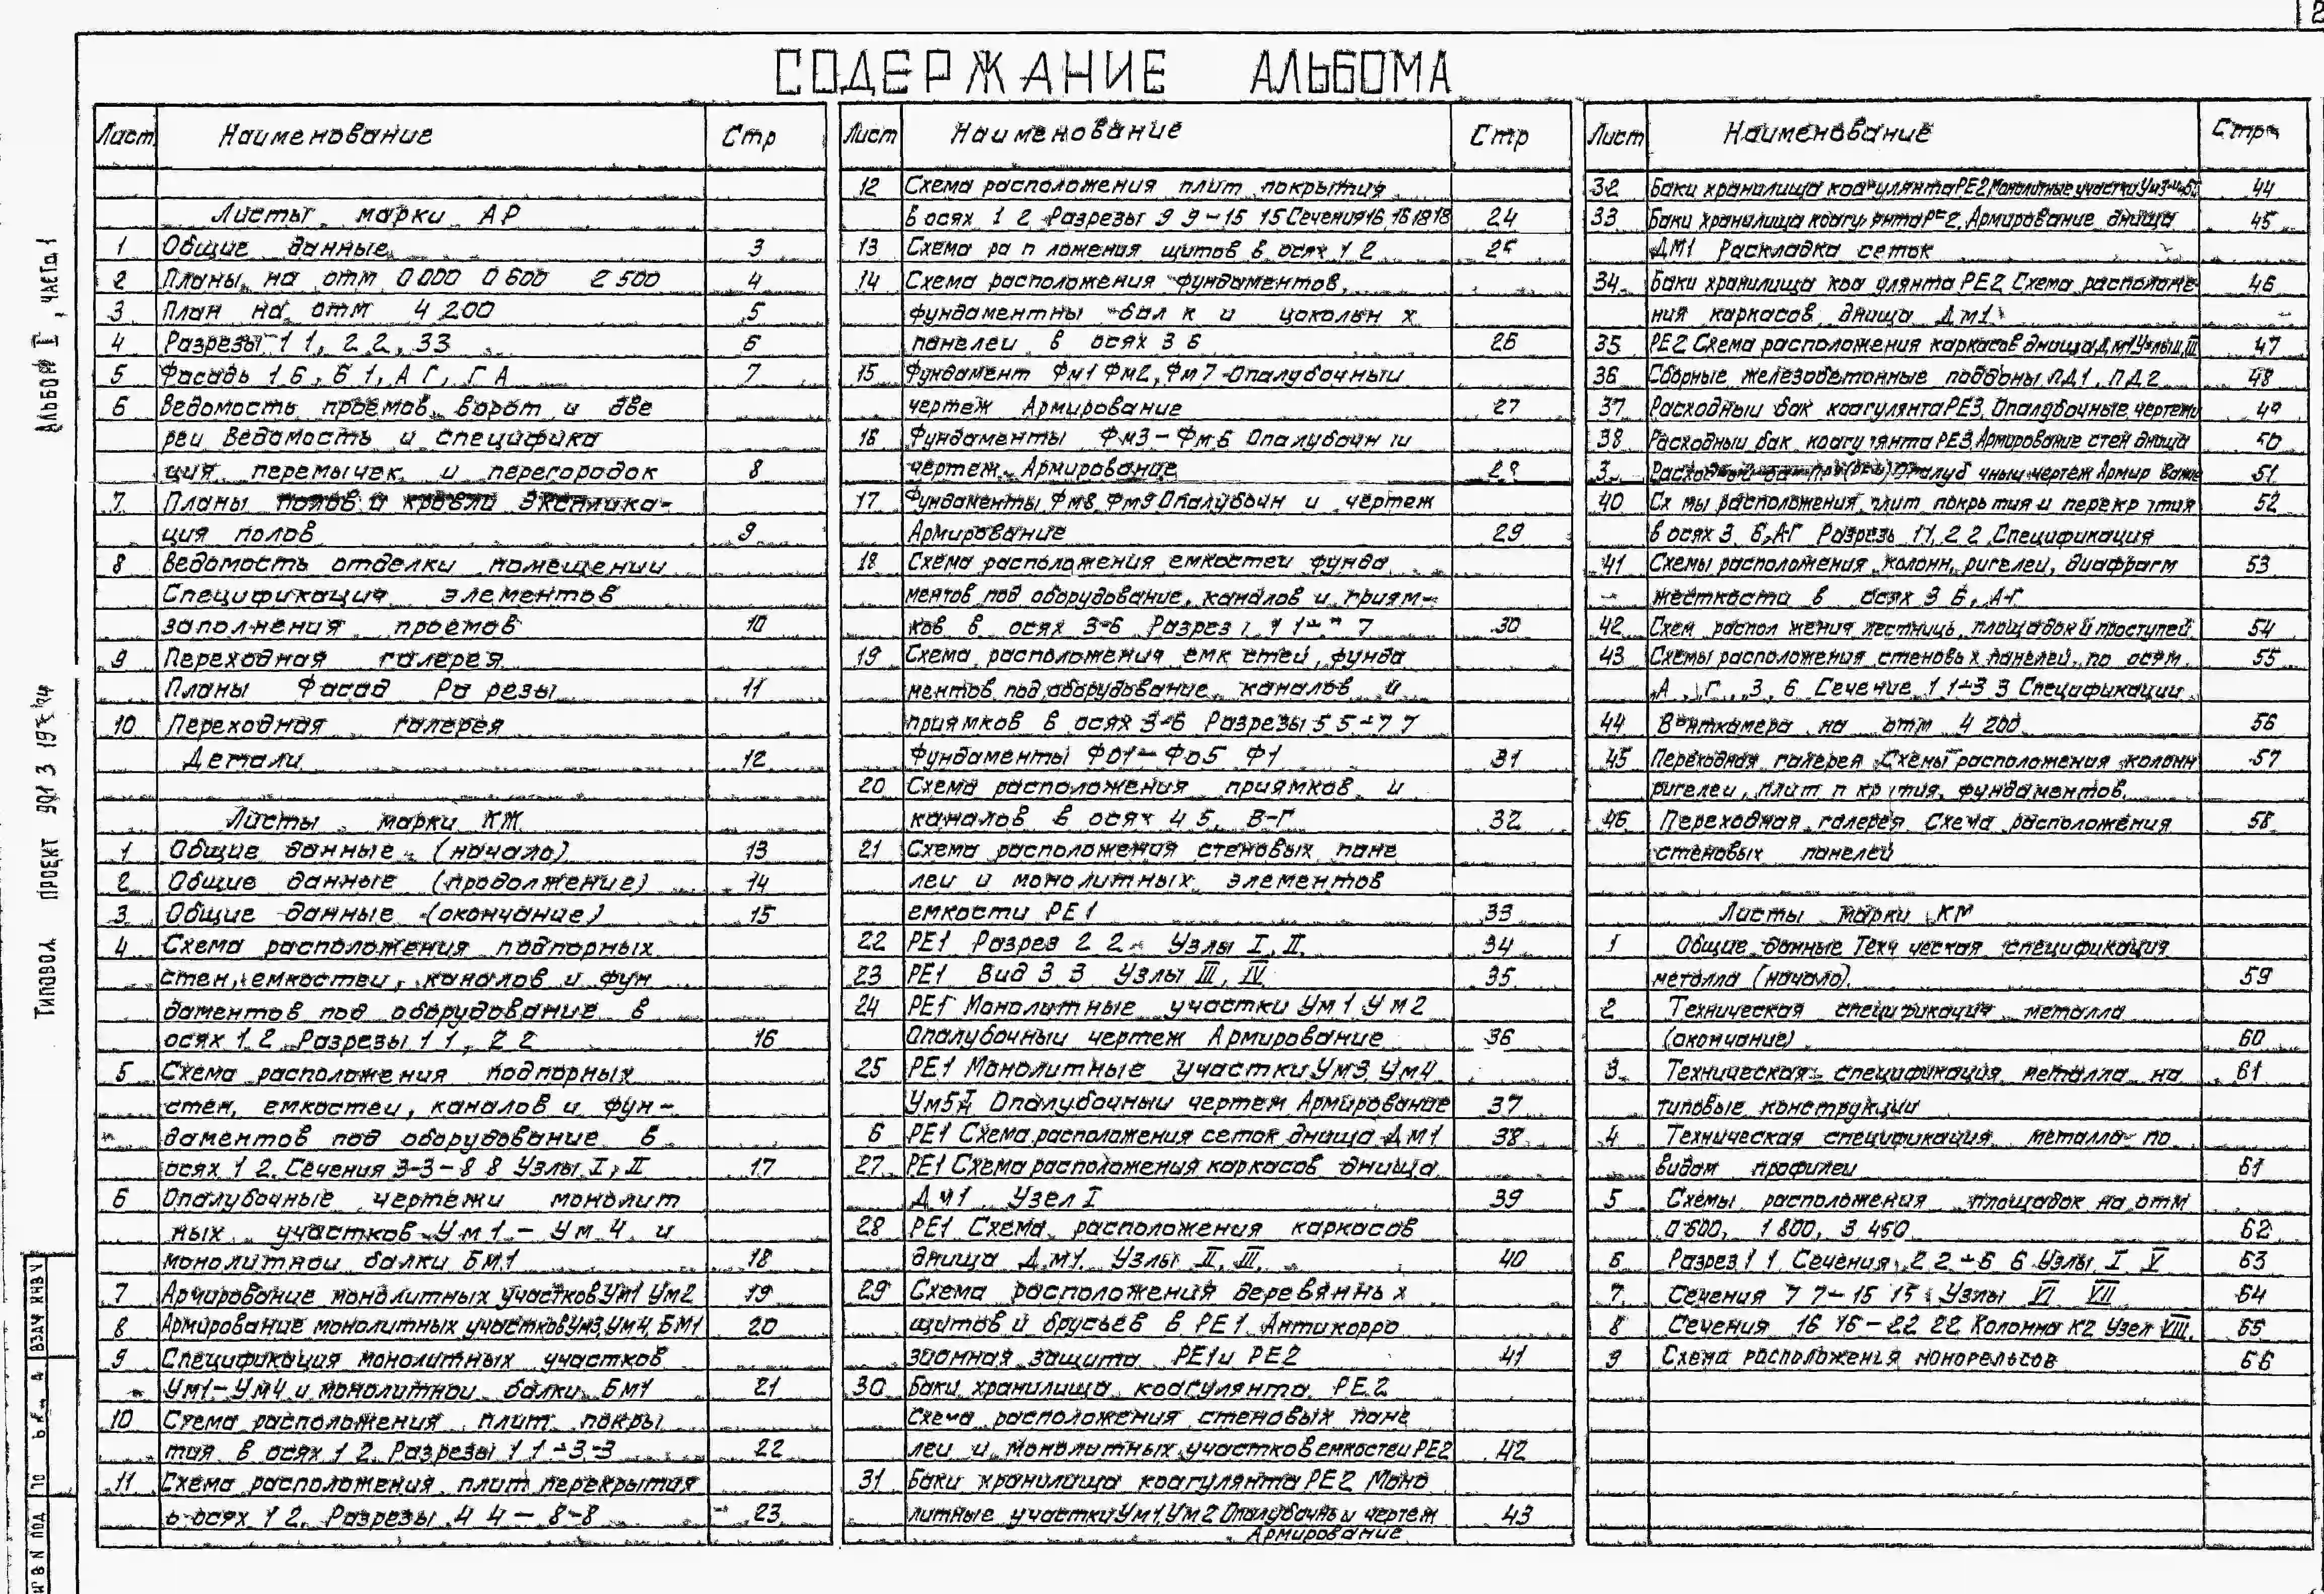 2
СОДЕРЖАНИЕ АЛЬБОМА
Лист Наименование Стр
Листы марки АР
1 Общие данные 3
2 Планы на отм 0 000 0 600 2 500 4
3 План на отм 4 200 5
4 Разрезы 1 1, 2 2, 3 3 6
5 Фасады 1 6, 6 1, А Г, Г А 7
6 Ведомость проемов ворот и две
реи Ведомость и специфика
ция перемычек и перегородок 8
7 Планы полов и кровли Эксплика-
ция полов 9
8 Ведомость отделки помещении
Спецификация элементов
заполнения проемов 10
9 Переходная галерея
Планы Фасад Ра резы 11
10 Переходная галерея
Детали 12
Листы марки КЖ
1 Общие данные (начало) 13
2 Общие данные (продолжение) 14
3 Общие данные (окончание) 15
4 Схема расположения подпорных
стен, емкостеи, каналов и фун
даментов под оборудование в
осях 1 2 Разрезы 1 1, 2 2 16
5 Схема расположения подпорных
стен, емкостеи, каналов и фун-
даментов под оборудование в
осях 1 2. Сечения 3-3-8 8 Узлы I, II 17
6 Опалубочные чертежи монолит
ных участков Ум 1 - Ум 4 и
монолитнои балки БМ1 18
7 Армирование монолитных участков Ум1 Ум2 19
8 Армирование монолитных участков Ум3, Ум4, БМ1 20
9 Спецификация монолитных участков
Ум1-Ум4 и монолитнои балки БМ1 21
10 Схема расположения плит покры
тия в осях 1 2. Разрезы 1 1-3-3 22
11 Схема расположения плит перекрытия
в осях 1 2. Разрезы 4 4 - 8-8 23
Лист Наименование Стр
12 Схема расположения плит покрытия
в осях 1 2 Разрезы 9 9-15 15 Сечения 16 16 18 18 24
13 Схема ра п ложения щитов в осях 1 2 25
14 Схема расположения фундаментов,
фундаментны бал к и цокольн х
панелеи в осях 3 6 26
15 Фундамент Фм1 Фм2, Фм7 Опалубочныи
чертеж Армирование 27
16 Фундаменты Фм3-Фм6 Опалубочн и
чертеж. Армирование 28
17 Фундаменты Фм8, Фм9 Опалубочн и чертеж
Армирование 29
18 Схема расположения емкостеи фунда
ментов под оборудование, каналов и приям-
ков в осях 3-6 Разрез 1 1 7 30
19 Схема расположения емк стей, фунда
ментов под оборудование каналов и
приямков в осях 3-6 Разрезы 5 5-7 7
Фундаменты Фо1-Фо5 Ф1 31
20 Схема расположения приямков и
каналов в осях 4 5, В-Г 32
21 Схема расположения стеновых пане
леи и монолитных элементов
емкости РЕ1 33
22 РЕ1 Разрез 2 2. Узлы I, II, 34
23 РЕ1 Вид 3 3 Узлы III, IV 35
24 РЕ1 Монолитные участки Ум 1 Ум2
Опалубочныи чертеж Армирование 36
25 РЕ1 Монолитные участки Ум3, Ум4
Ум5 Опалубочныи чертеж Армирование 37
6 РЕ1 Схема расположения сеток днища ДМ1 38
27 РЕ1 Схема расположения каркасов днища
ДМ1 Узел I 39
28 РЕ1 Схема расположения каркасов
днища ДМ1. Узлы II, III. 40
29 Схема расположения деревянны х
щитов и брусьев в РЕ1 Антикорро
зионная защита РЕ1 и РЕ2 41
30 Баки хранилища коагулянта РЕ2
Схема расположения стеновых пане
леи и монолитных участков емкостеи РЕ2 42
31 Баки хранилища коагулянта РЕ2 Моно
литные участки Ум1, Ум2 Опалубочны и чертеж 43
Армирование
Лист Наименование Стр
32 Баки хранилища коагулянта РЕ2 Монолитные участки 44
33 Баки хранилища коагу янта РЕ2, Армирование днища 45
ДМ1 Раскладка сеток
34 Баки хранилища коа улянта РЕ2 Схема расположе- 46
ния каркасов днища ДМ1
35 РЕ2 Схема расположения каркасов днища ДМ1 Узлы II, III 47
36 Сборные железобетонные поддоны ПД1, ПД2 48
37 Расходныи бак коагулянта РЕ3. Опалубочные чертежи 49
38 Расходныи бак коагулянта РЕ3 Армирование стен днища 50
3 Опалуб чныи чертеж Армир вание 51
40 Сх мы расположения плит покры тия и перекр тия 52
в осях 3 6, А-Г Разрезы 1 1, 2 2 Спецификация
41 Схемы расположения колонн, ригелеи, диафрагм 53
жесткости в осях 3 6, А-Г
42 Схем распол жения лестниць, площадок и проступей 54
43 Схемы расположения стеновы х панелей по осям 55
А, Г, 3, 6 Сечение 1 1-3 3 Спецификации
44 Венткамера на отм 4 200 56
45 Переходная галерея Схемы расположения колонн 57
ригелеи, плит п кр тия, фундаментов.
46 Переходная галерея Схема расположения 58
стеновых панелей
Листы марки КМ
1 Общие данные Техн ческая спецификация
металла (начало). 59
2 Техническая спецификация металла
(окончание) 60
3 Техническая спецификация металла на 61
типовые конструкции
4 Техническая спецификация металла по
видам профилеи 61
5 Схемы расположения площадок на отм
0 600, 1 800, 3 450 62
6 Разрез 1 1 Сечения 2 2-6 6 Узлы I V 63
7 Сечения 7 7-15 15 Узлы VI VII 64
8 Сечения 16 16-22 22 Колонна К2 Узел VIII. 65
9 Схема расположения монорельсов 66
Альбом I, часть 1
Типовой проект 901 3
Взам инв